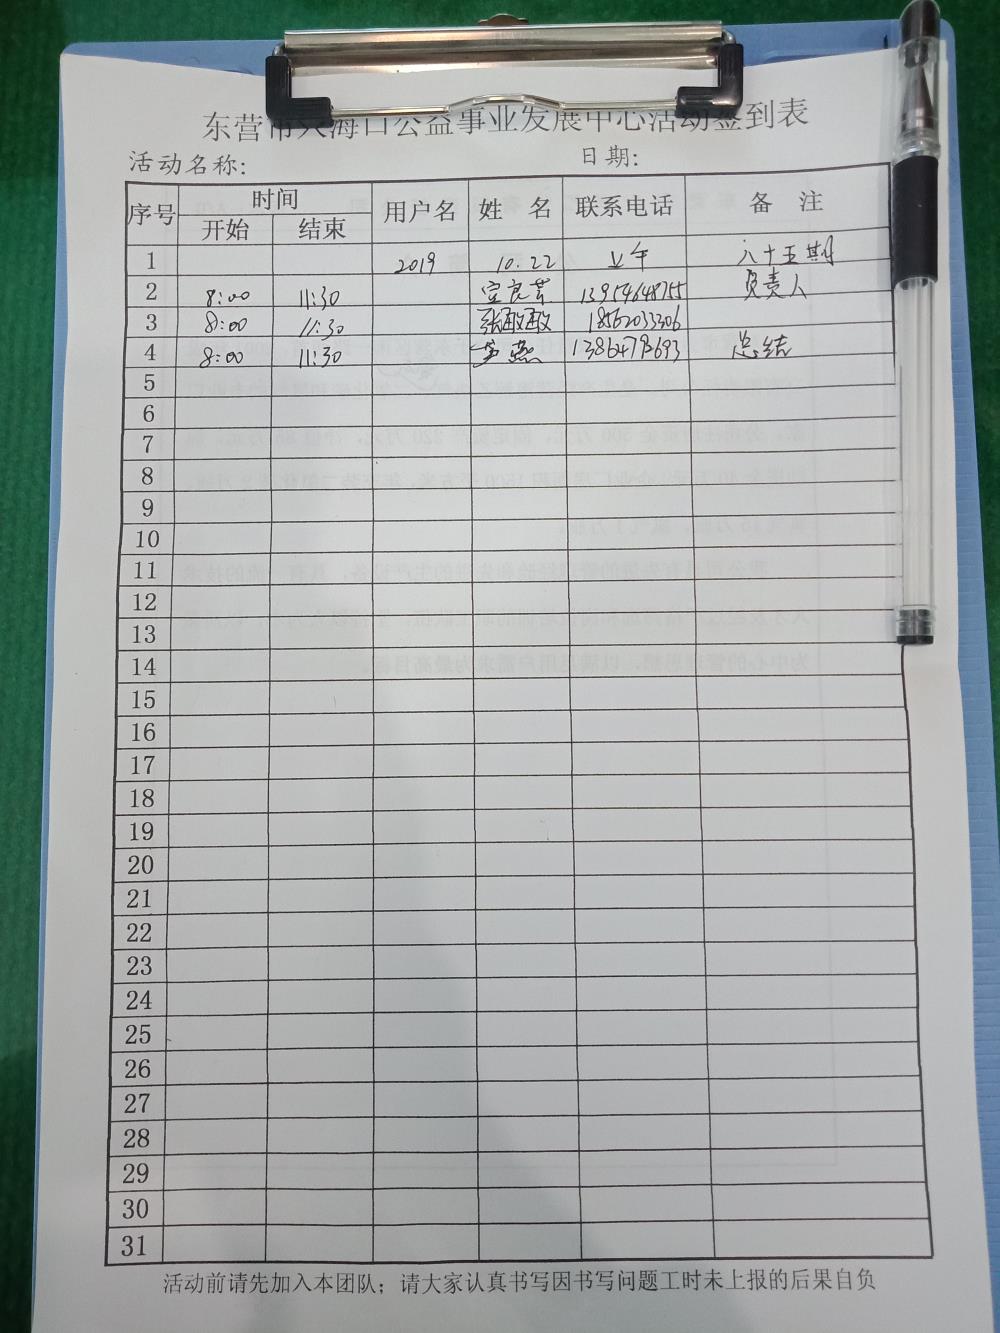 东营市入海口公益事业发展中心活动签到表
活动名称: 日期:
序号 时间 用户名 姓 名 联系电话 备 注
开始 结束
1 2019 10.22 上午 八十五期
2 8:00 11:30 13954648755 负责人
3 8:00 11:30 张敏敏 18562033306
4 8:00 11:30 燕 13864793693 总结
5
6
7
8
9
10
11
12
13
14
15
16
17
18
19
20
21
22
23
24
25
26
27
28
29
30
31
活动前请先加入本团队；请大家认真书写因书写问题工时未上报的后果自负